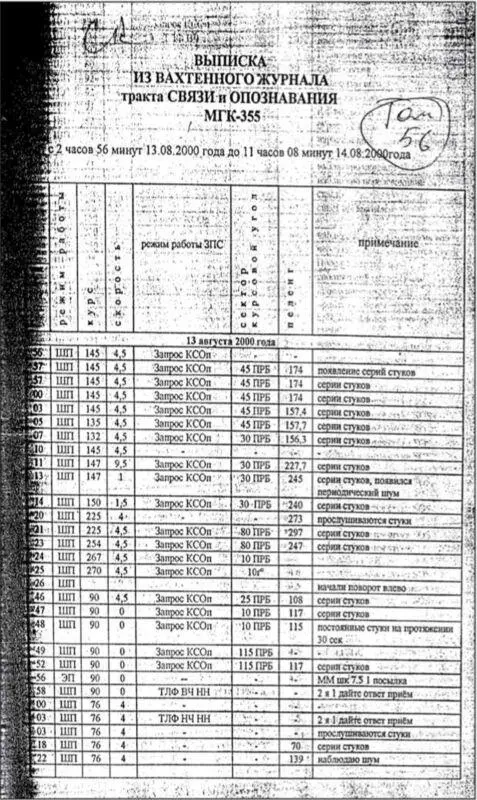 ВЫПИСКА
ИЗ ВАХТЕННОГО ЖУРНАЛА
тракта СВЯЗИ и ОПОЗНАВАНИЯ
МГК-355
Том
56
с 2 часов 56 минут 13.08.2000 года до 11 часов 08 минут 14.08.2000года
режим работы курс скорость режим работы ЗПС сектор курсовой угол пеленг примечание
13 августа 2000 года
56 ШП 145 4,5 Запрос КСОп - - -
57 ШП 145 4,5 Запрос КСОп 45 ПРБ 174 появление серий стуков
57 ШП 145 4,5 Запрос КСОп 45 ПРБ 174 серии стуков
00 ШП 145 4,5 Запрос КСОп 45 ПРБ 174 серии стуков
03 ШП 145 4,5 Запрос КСОп 45 ПРБ 157,4 серии стуков
05 ШП 135 4,5 Запрос КСОп 45 ПРБ 157,7 серии стуков
07 ШП 132 4,5 Запрос КСОп 30 ПРБ 156,3 серии стуков
10 ШП 145 4,5 - - - -
11 ШП 147 9,5 Запрос КСОп 30 ПРБ 227,7 серии стуков
13 ШП 147 1 Запрос КСОп 30 ПРБ 245 серии стуков, появился
периодический шум
14 ШП 150 1,5 Запрос КСОп 30 ПРБ 240 серии стуков
20 ШП 225 4 - - 273 прослушиваются стуки
21 ШП 225 4,5 Запрос КСОп 80 ПРБ 297 серии стуков
23 ШП 254 4,5 Запрос КСОп 80 ПРБ 247 серии стуков
24 ШП 267 4,5 Запрос КСОп 10 ПРБ
25 ШП 270 4,5 Запрос КСОп
26 ШП начали поворот влево
46 ШП 90 4,5 Запрос КСОп 25 ПРБ 108 серии стуков
47 ШП 90 0 Запрос КСОп 10 ПРБ 117 серии стуков
48 ШП 90 0 Запрос КСОп 10 ПРБ 115 постоянные стуки на протяжении
30 сек
49 ШП 90 0 Запрос КСОп 115 ПРБ - -
52 ШП 90 0 Запрос КСОп 115 ПРБ 117 серии стуков
56 ЭП 90 0 -- - - ММ шк 7.5 1 посылка
58 ШП 90 0 ТЛФ ВЧ НН - - 2 я 1 дайте ответ приём
00 ШП 76 4 - - -
03 ШП 76 4 ТЛФ НЧ НН - - 2 я 1 дайте ответ приём
03 ШП 76 4 - - - прослушиваются стуки
18 ШП 76 4 - - 70 серии стуков
22 ШП 76 4 - - 139 наблюдаю шум